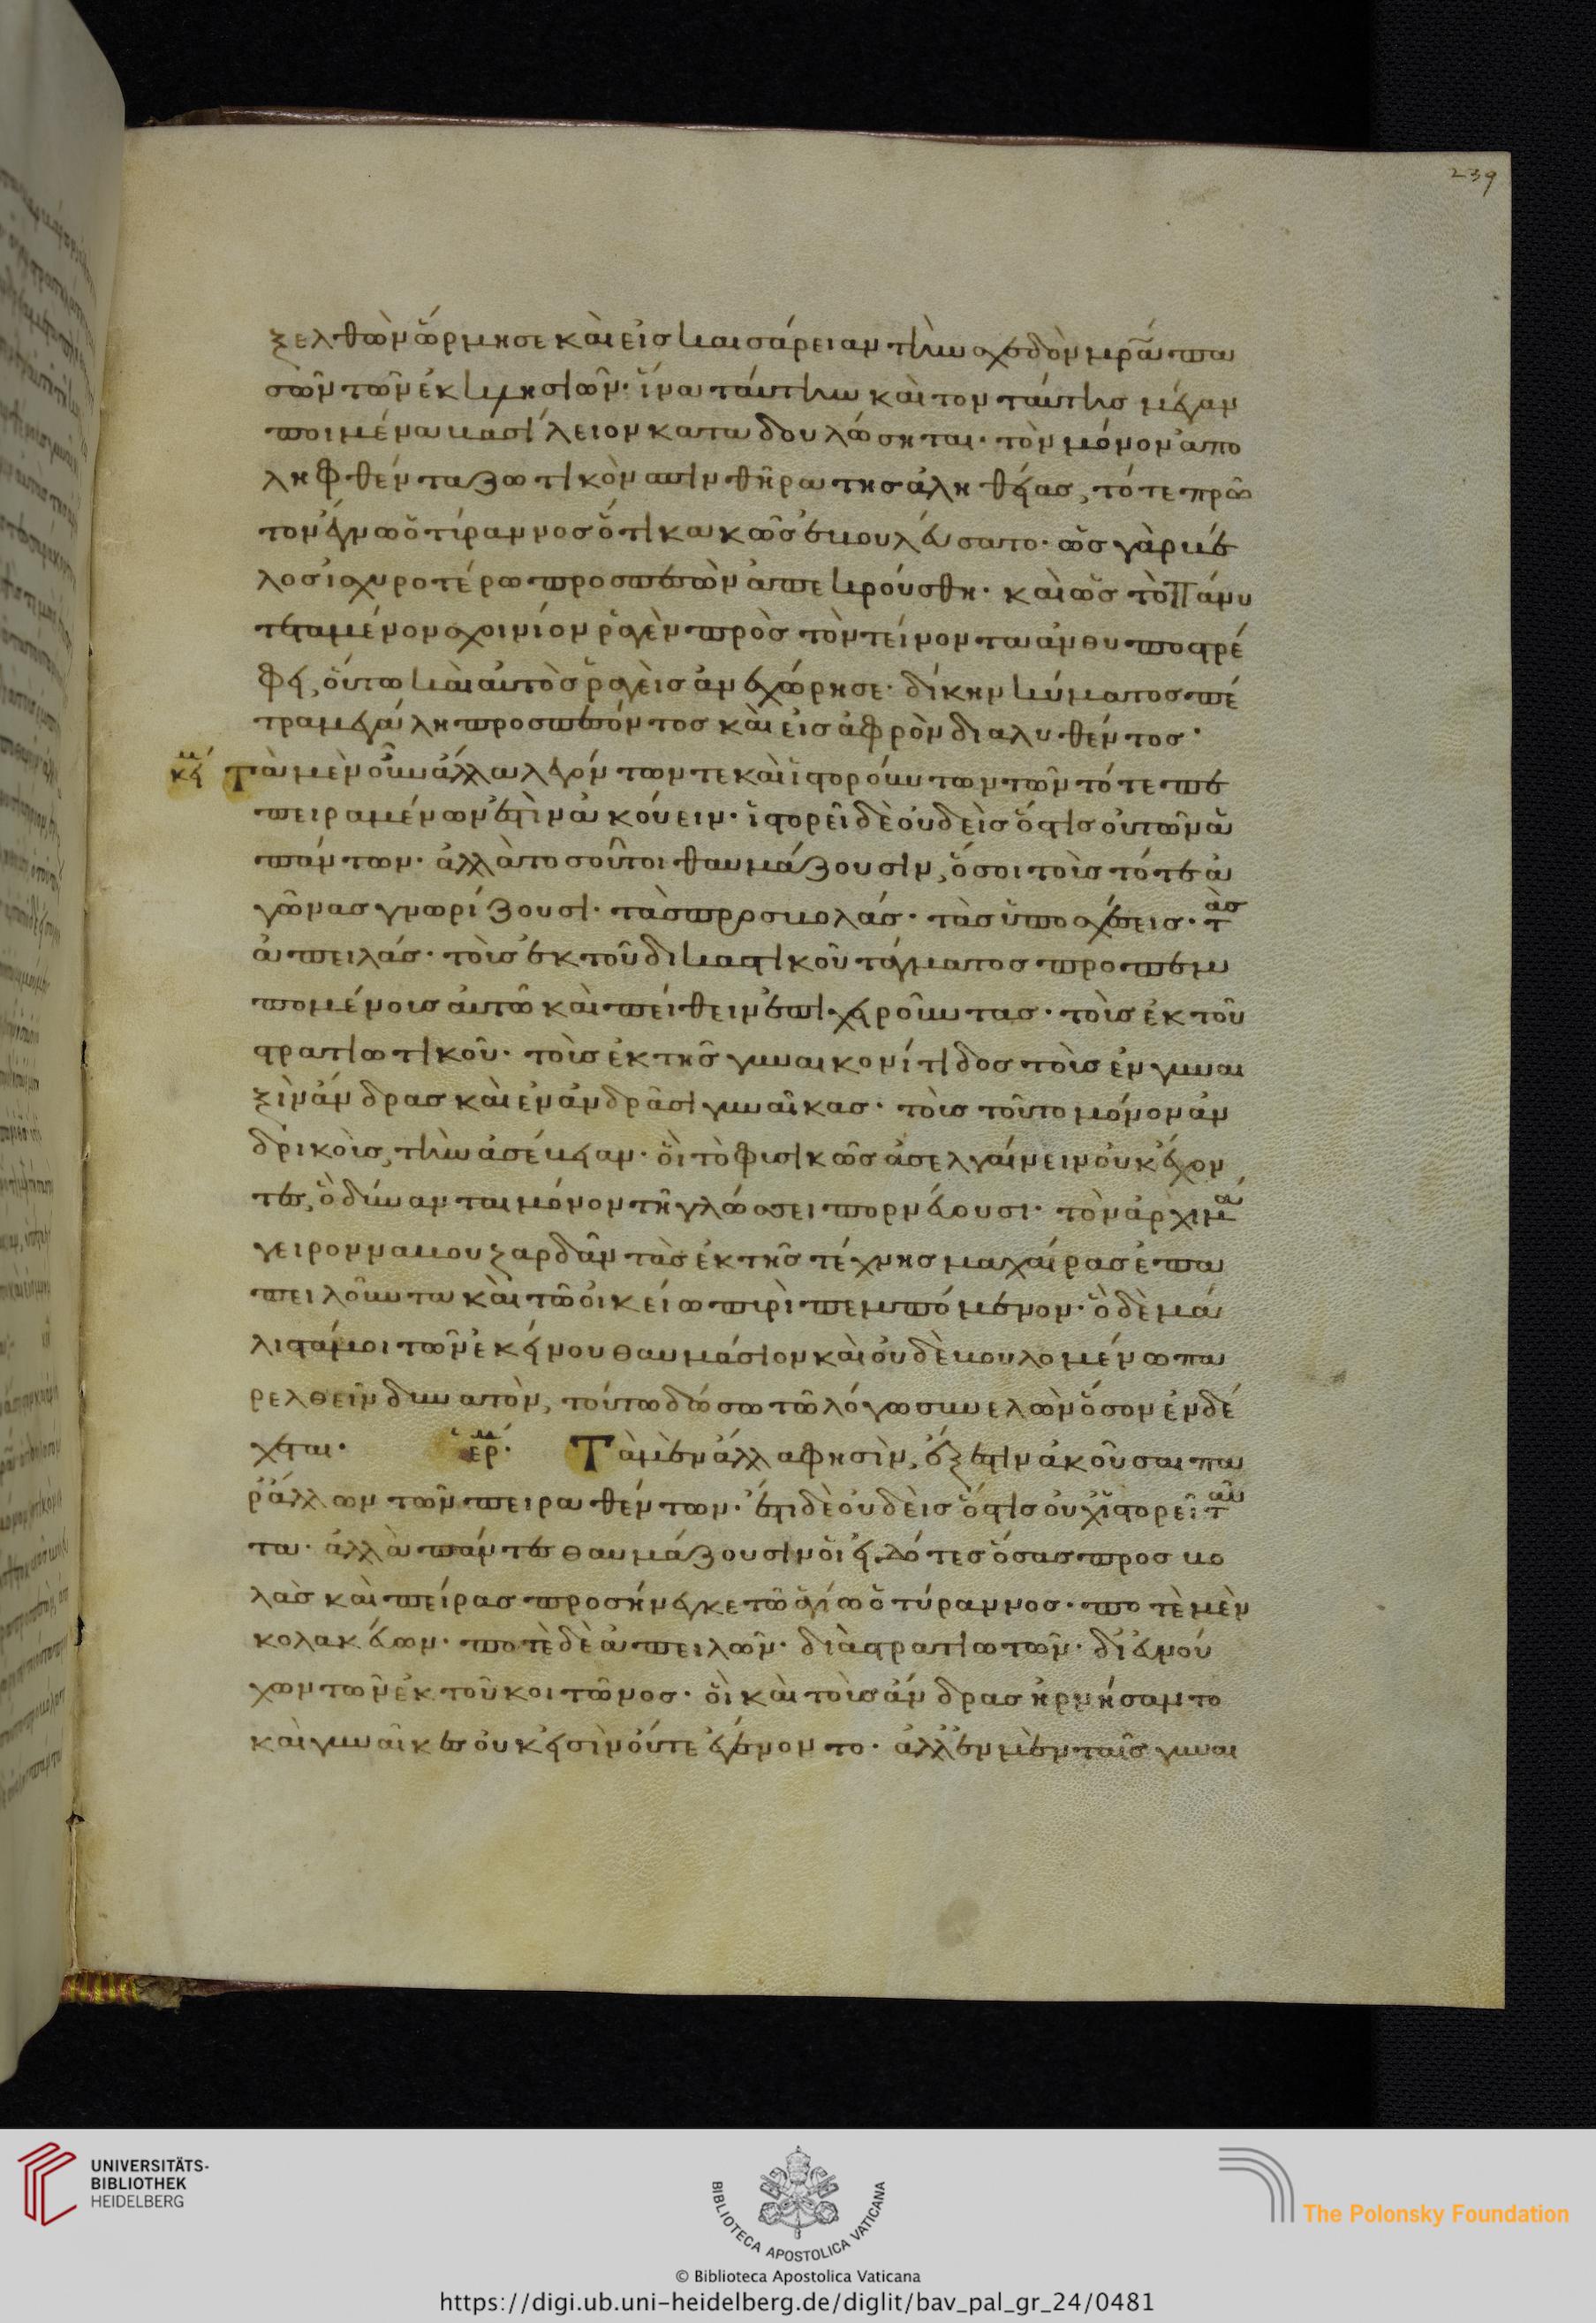 239
ξελθὼν ὥρμησε καὶ εἰς καισάρειαν τὴν σχεδὸν μρᾶν πα
σῶν τῶν ἐκκλησιῶν· ἵνα ταύτην καὶ τον ταύτης μέγαν
ποιμένα βασίλειον καταδουλώσηται· τὸν μόνον ἀπο
ληφθέντα ζωτικὸν σπινθῆρα της ἀληθείας, τότε πρῶ
τον ἔγνω ὁ τύραννος ὅτι κακῶς ἐβουλεύσατο· ὡς γὰρ βέ
λος ἰσχυροτέρω προσπεσὸν ἀπεκρούσθη· καὶ ὡς τὸ πάνυ
τεταμένον σχοινίον ῥαγὲν πρὸς τὸν τείνοντα ἀνθυποστρέ
φει, οὕτω καὶ αὐτὸς ῥαγεὶς ἀνεχώρησε· δίκην κύματος πέ
τρα μεγάλη προσπεσόντος καὶ εἰς ἀφρὸν διαλυθέντος·
κεί Τὰ μὲν οὖν ἄλλα λεγόντων τε καὶ ἱστορούντων τῶν τότε πε
πειραμένων ἐστὶν ἀκούειν· ἱστορεῖ δὲ οὐδεὶς ὅστις οὐ τῶν ἁ
πάντων· ἀλλὰ τοσοῦτοι θαυμάζουσιν, ὅσοι τοὺς τότε ἀ
γῶνας γνωρίζουσι· τὰς προσβολάς· τὰς ὑποσχέσεις· τὰς
ἀπειλάς· τοὺς ἐκ τοῦ δικαστικοῦ τάγματος προπεμ
πομένους αὐτῶ καὶ πείθειν ἐπιχειροῦντας· τοὺς ἐκ τοῦ
στρατιωτικοῦ· τοὺς ἐκ τῆς γυναικονίτιδος τοὺς ἐν γυναι
ξὶν ἄνδρας καὶ ἐν ἀνδράσι γυναῖκας· τοὺς τοῦτο μόνον ἀν
δρικοὺς, τὴν ἀσέβειαν· οἳ τὸ φυσικῶς ἀσελγαίνειν οὐκ ἔχον
τες, ὃ δύνανται μόνον τῇ γλώσσει πορνεύουσι· τὸν ἀρχιμά
γειρον ναβουζαρδὰν τὰς ἐκ τῆς τέχνης μαχαίρας ἐπα
πειλοῦντα καὶ τῶ οἰκείω πυρὶ πεμπόμενον· ὃ δὲ μά
λιστά μοι τῶν ἐκείνου θαυμάσιον καὶ οὐδὲ βουλομένω πα
ρελθεῖν δυνατὸν, τούτω δώσω τῶ λόγω συνελὼν ὅσον ἐνδέ
χεται· ἑρμ· Τὰ μὲν ἄλλα φησὶν, ἔξεστιν ἀκοῦσαι πα
ρ' ἄλλων τῶν πειραθέντων· ἔστι δὲ οὐδεὶς ὅστις οὐχ ἱστορεῖ ταῦ
τα· ἀλλὰ πάντες θαυμάζουσιν οἱ εἰδότες ὅσας προσβο
λὰς καὶ πείρας προσήνεγκε τῶ ἁγίω ὁ τύραννος· ποτὲ μὲν
κολακεύων· ποτὲ δὲ ἀπειλῶν· διὰ στρατιωτῶν· δι' εὐνού
χων τῶν ἐκ τοῦ κοιτῶνος· οἳ καὶ τοὺς ἄνδρας ἠρνήσαντο
καὶ γυναῖκες οὐκ εἰσὶν οὔτε ἐγένοντο· ἀλλ' ἐν μὲν ταῖς γυναι
UNIVERSITÄTS-
BIBLIOTHEK
HEIDELBERG
BIBLIOTECA APOSTOLICA VATICANA
© Biblioteca Apostolica Vaticana
The Polonsky Foundation
https://digi.ub.uni-heidelberg.de/diglit/bav_pal_gr_24/0481